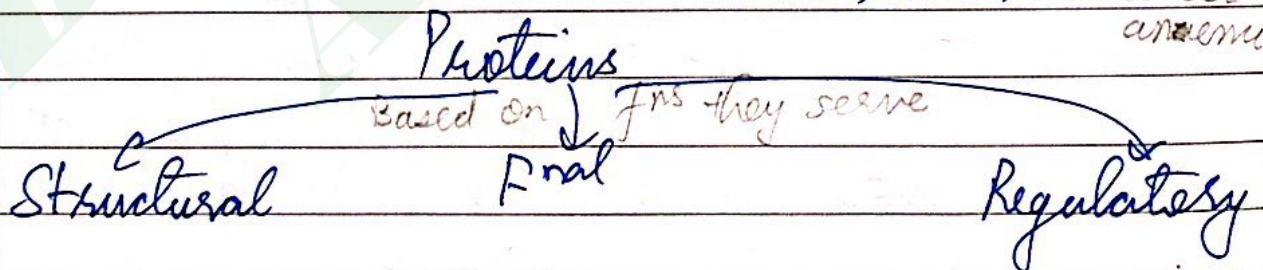 anaemi
Proteins
Based on Fns they serve
Structural Fnal Regulatory